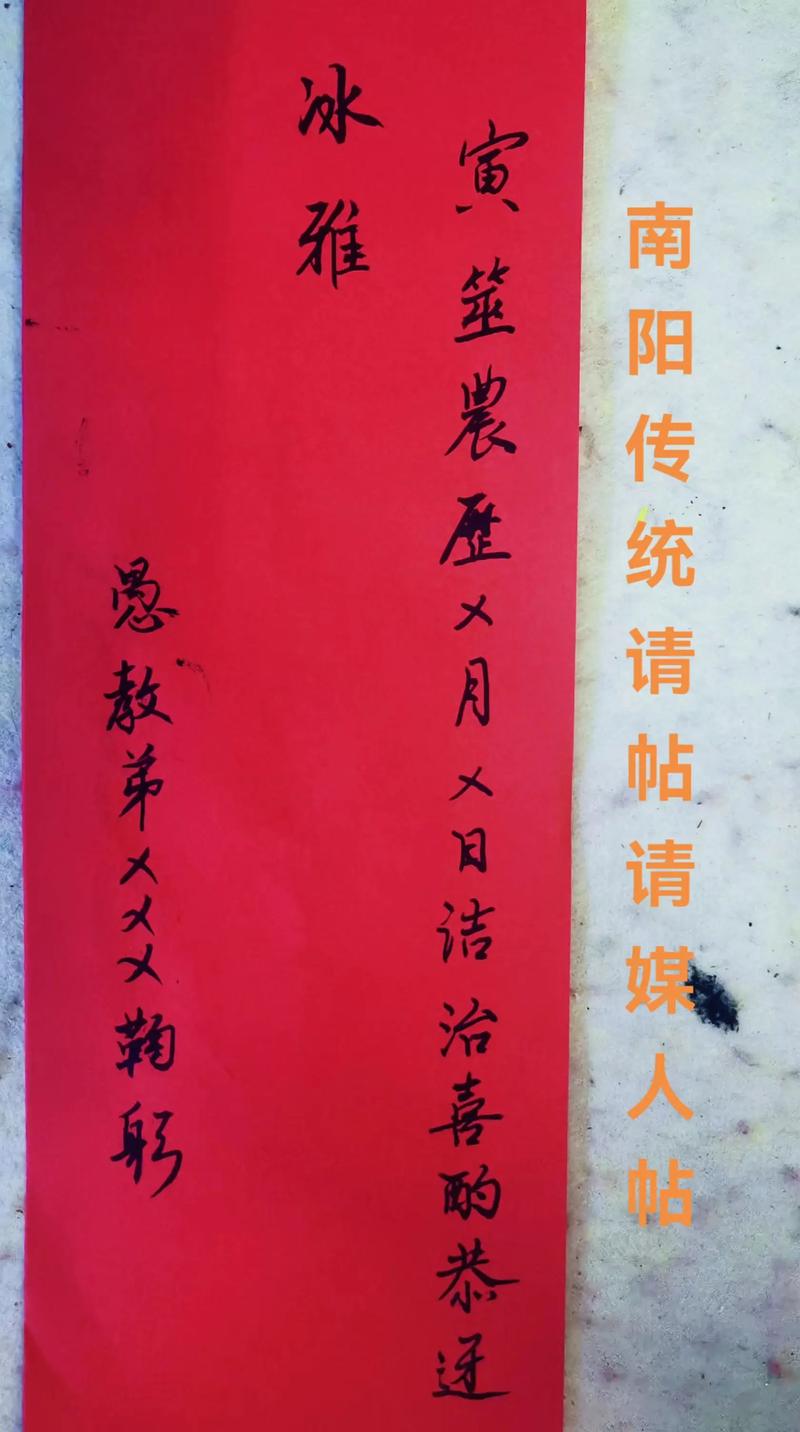 南阳传统请帖请媒人帖
寅筮農歷乂月乂日诘治喜酌恭迓
冰雅
愚教弟乂乂乂鞠躬